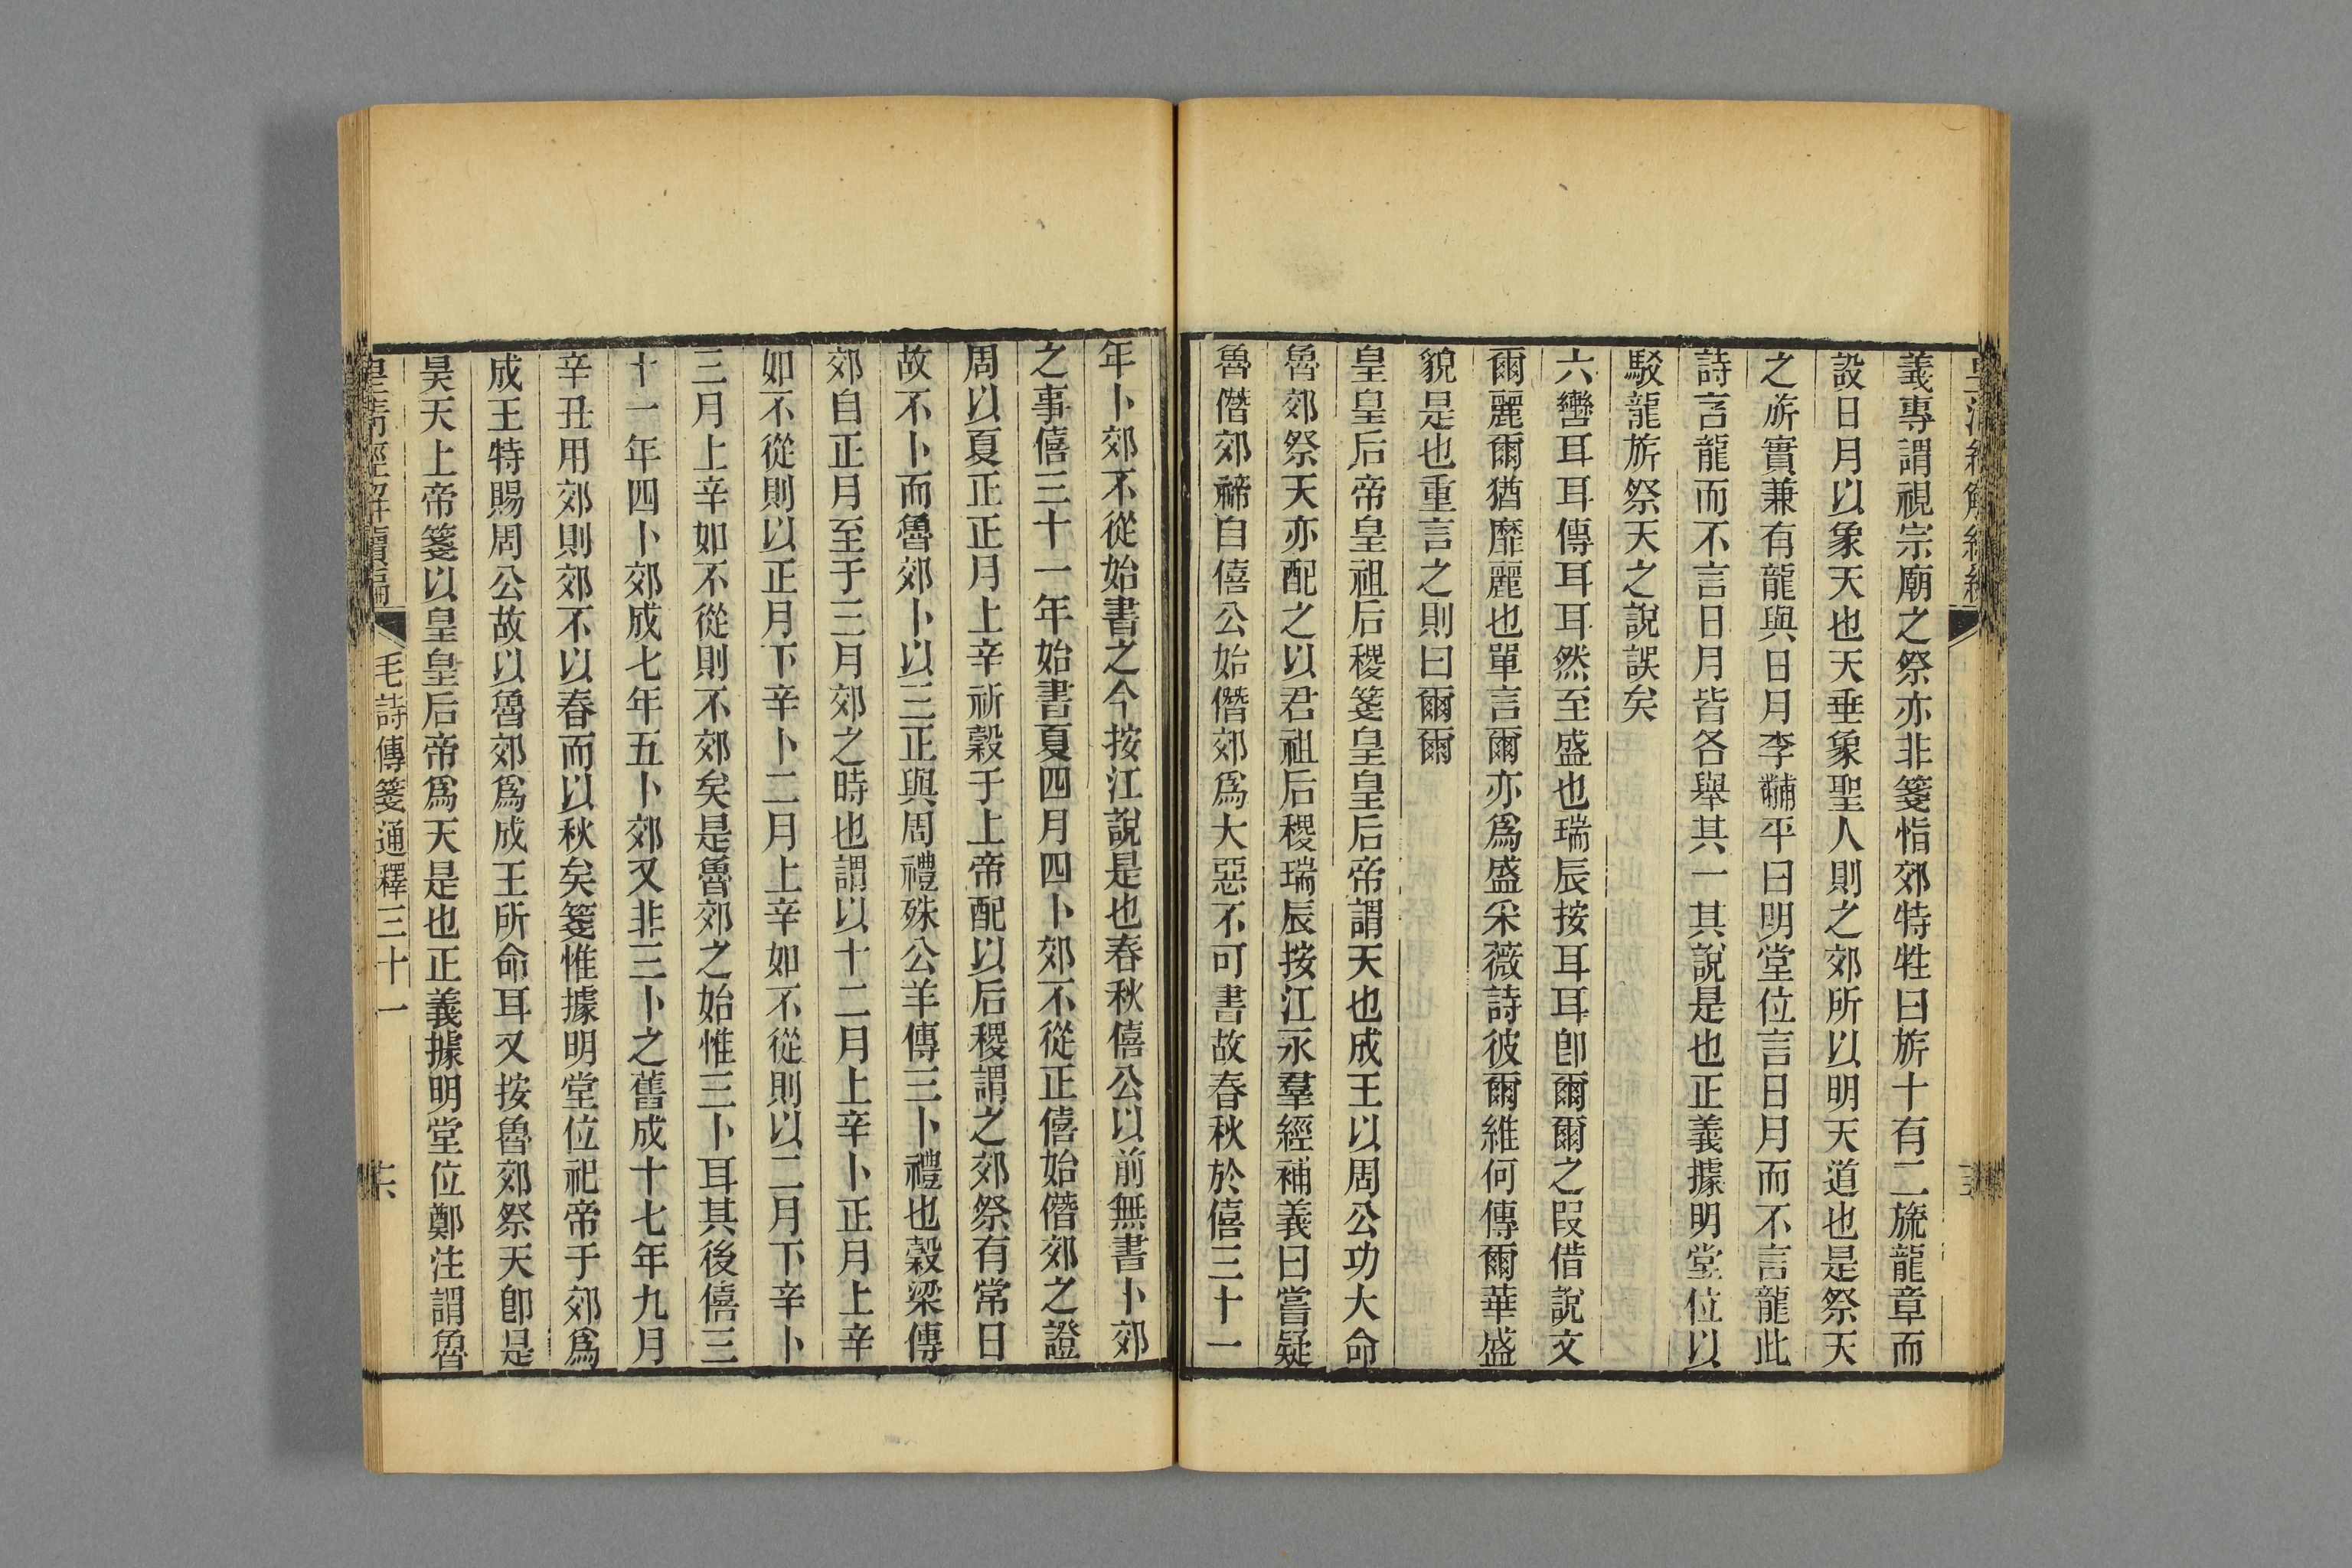 義專謂視宗廟之祭亦非箋恉郊特牲曰旂十有二旒龍章而
設日月以象天也天垂象聖人則之郊所以明天道也是祭天
之旂實兼有龍與日月李黼平曰明堂位言日月而不言龍此
詩言龍而不言日月皆各舉其一其說是也正義據明堂位以
駁龍旂祭天之說誤矣
六轡耳耳傳耳耳然至盛也瑞辰按耳耳卽爾爾之叚借說文
爾麗爾猶靡麗也單言爾亦爲盛采薇詩彼爾維何傳爾華盛
貌是也重言之則曰爾爾
皇皇后帝皇祖后稷箋皇皇后帝謂天也成王以周公功大命
魯郊祭天亦配之以君祖后稷瑞辰按江永羣經補義曰嘗疑
魯僭郊禘自僖公始僭郊爲大惡不可書故春秋於僖三十一
年卜郊不從始書之今按江說是也春秋僖公以前無書卜郊
之事僖三十一年始書夏四月四卜郊不從正僖始僭郊之證
周以夏正正月上辛祈穀于上帝配以后稷謂之郊祭有常日
故不卜而魯郊卜以三正與周禮殊公羊傳三卜禮也穀梁傳
郊自正月至于三月郊之時也謂以十二月上辛卜正月上辛
如不從則以正月下辛卜二月上辛如不從則以二月下辛卜
三月上辛如不從則不郊矣是魯郊之始惟三卜耳其後僖三
十一年四卜郊成七年五卜郊又非三卜之舊成十七年九月
辛丑用郊則郊不以春而以秋矣箋惟據明堂位祀帝于郊爲
成王特賜周公故以魯郊爲成王所命耳又按魯郊祭天卽是
昊天上帝箋以皇皇后帝爲天是也正義據明堂位鄭注謂魯
皇清經解續編 毛詩傳箋通釋三十一